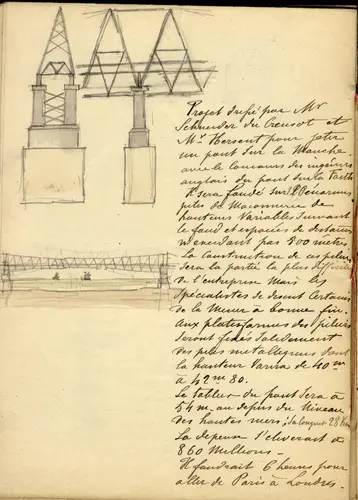 Projet dressé par Mr
Schneider du Creusot et
Mr Hersent pour jeter
un pont sur la Manche
avec le concours des ingénieurs
anglais du pont sur le Forth
Il sera fondé sur
piles de Maçonnerie de
hauteurs variables suivant
le fond et espacées de distances
n'excédant pas 500 mètres
La construction de ces piles
sera la partie la plus difficile
de l'entreprise mais les
spécialistes se disent certains
de la mener à bonne fin.
Aux plateformes des piliers
seront fixés solidement
des piles métalliques dont
la hauteur varia de 40m
à 42m 80.
Le tablier du pont sera à
54m au dépus du niveau
des hautes mers; sa longueur 38
La dépense s'élèverait à
860 Millions.
Il faudrait 6 heures pour
aller de Paris à Londres.